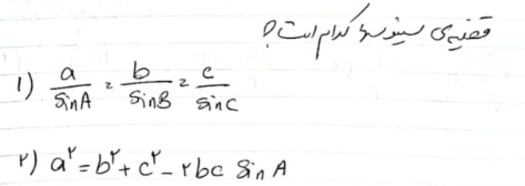 قضیه‌ی سینوس‌ها کدام است؟
1) a/sinA = b/sinB = c/sinC
۲) a^۲ = b^۲ + c^۲ - ۲bc sin A